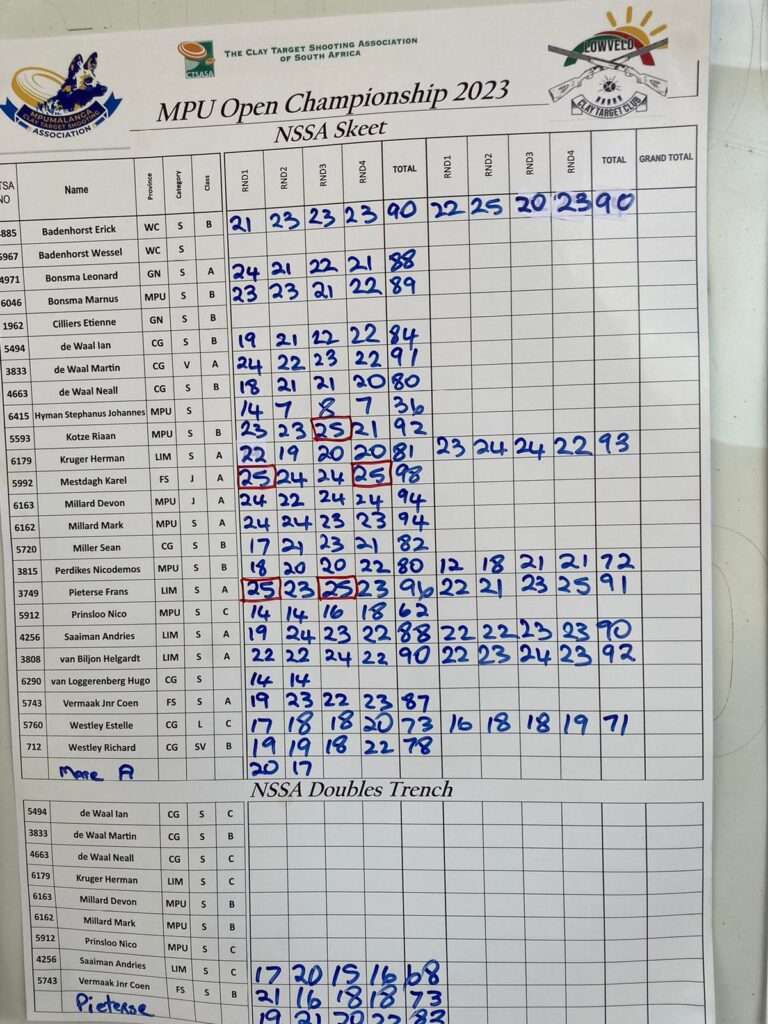 MPUMALANGA
CLAY TARGET SHOOTING
ASSOCIATION
CTSASA
THE CLAY TARGET SHOOTING ASSOCIATION
OF SOUTH AFRICA
LOWVELD
CLAY TARGET CLUB
MPU Open Championship 2023
NSSA Skeet
TSA NO Name Province Category Class RND1 RND2 RND3 RND4 TOTAL RND1 RND2 RND3 RND4 TOTAL GRAND TOTAL
885 Badenhorst Erick WC S B 21 23 23 23 90 22 25 20 23 90
5967 Badenhorst Wessel WC S
4971 Bonsma Leonard GN S A 24 21 22 21 88
6046 Bonsma Marnus MPU S B 23 23 21 22 89
1962 Cilliers Etienne GN S B
5494 de Waal Ian CG S B 19 21 22 22 84
3833 de Waal Martin CG V A 24 22 23 22 91
4663 de Waal Neall CG S B 18 21 21 20 80
6415 Hyman Stephanus Johannes MPU S 14 7 8 7 36
5593 Kotze Riaan MPU S B 23 23 25 21 92
6179 Kruger Herman LIM S A 22 19 20 20 81 23 24 24 22 93
5992 Mestdagh Karel FS J A 25 24 24 25 98
6163 Millard Devon MPU J A 24 22 24 24 94
6162 Millard Mark MPU S A 24 24 23 23 94
5720 Miller Sean CG S B 17 21 23 21 82
3815 Perdikes Nicodemos MPU S B 18 20 20 22 80 12 18 21 21 72
3749 Pieterse Frans LIM S A 25 23 25 23 96 22 21 23 25 91
5912 Prinsloo Nico MPU S C 14 14 16 18 62
4256 Saaiman Andries LIM S A 19 24 23 22 88 22 22 23 23 90
3808 van Biljon Helgardt LIM S A 22 22 24 22 90 22 23 24 23 92
6290 van Loggerenberg Hugo CG S 14 14
5743 Vermaak Jnr Coen FS S A 19 23 22 23 87
5760 Westley Estelle CG L C 17 18 18 20 73 16 18 18 19 71
712 Westley Richard CG SV B 19 19 18 22 78
Mare A 20 17
NSSA Doubles Trench
5494 de Waal Ian CG S C
3833 de Waal Martin CG S B
4663 de Waal Neall CG S C
6179 Kruger Herman LIM S C
6163 Millard Devon MPU S B
6162 Millard Mark MPU S B
5912 Prinsloo Nico MPU S C
4256 Saaiman Andries LIM S C 17 20 15 16 68
5743 Vermaak Jnr Coen FS S B 21 16 18 18 73
Pieterse 19 21 20 22